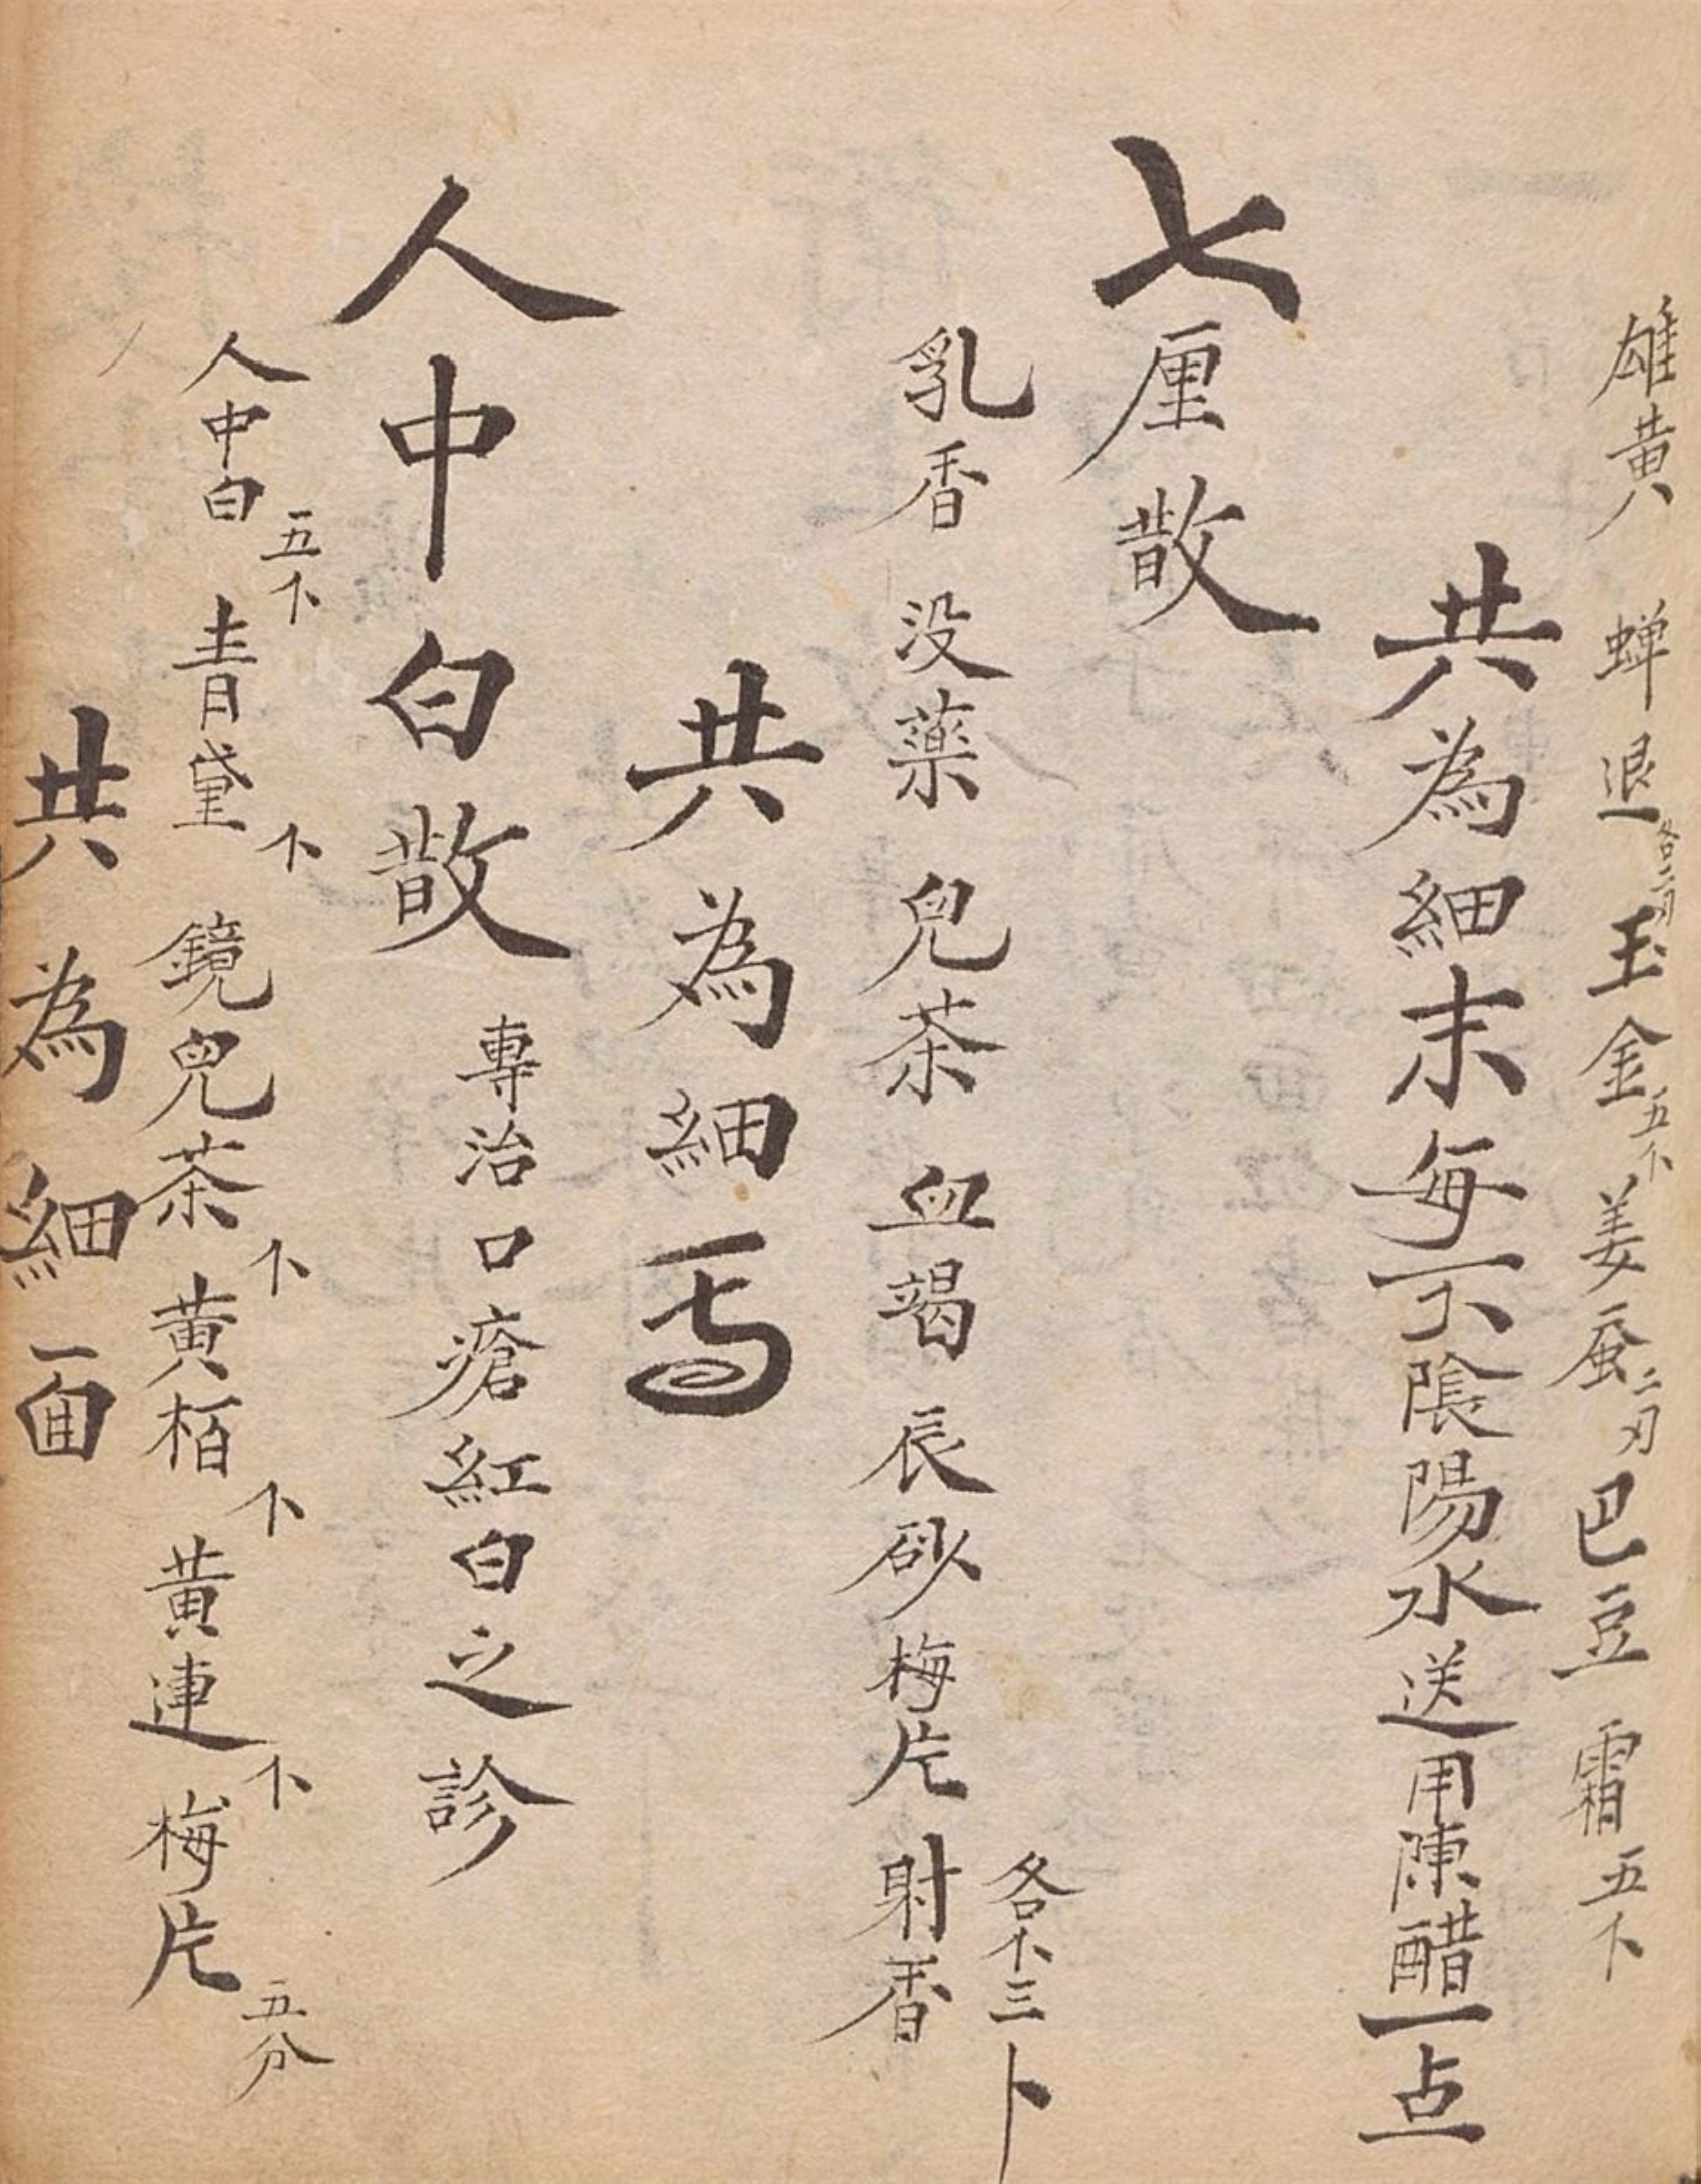 雄黄 蟬退各二刃玉金五卜姜蚕二刃巴豆霜五卜
共為細末每不陰陽水送用陳醋一点
七厘散
乳香 没藥 兒茶 血竭 辰砂 梅片 射香各卜三卜
共為細丐
人中白散 專治口瘡紅白之診
人中白五卜 青黛卜 鏡兒茶卜 黄栢卜 黄連卜 梅片五分
共為細面